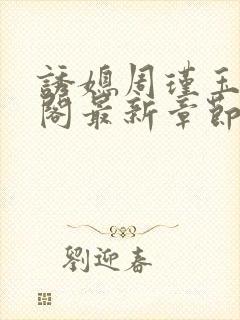 誘媳周瑾玉
閣最新章節
劉迎春